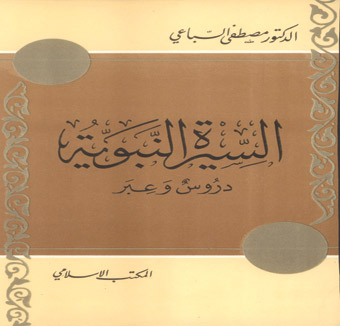 الدكتور مصطفى السباعي
السيرة النبوية
دروس وعبر
المكتب الإسلامي